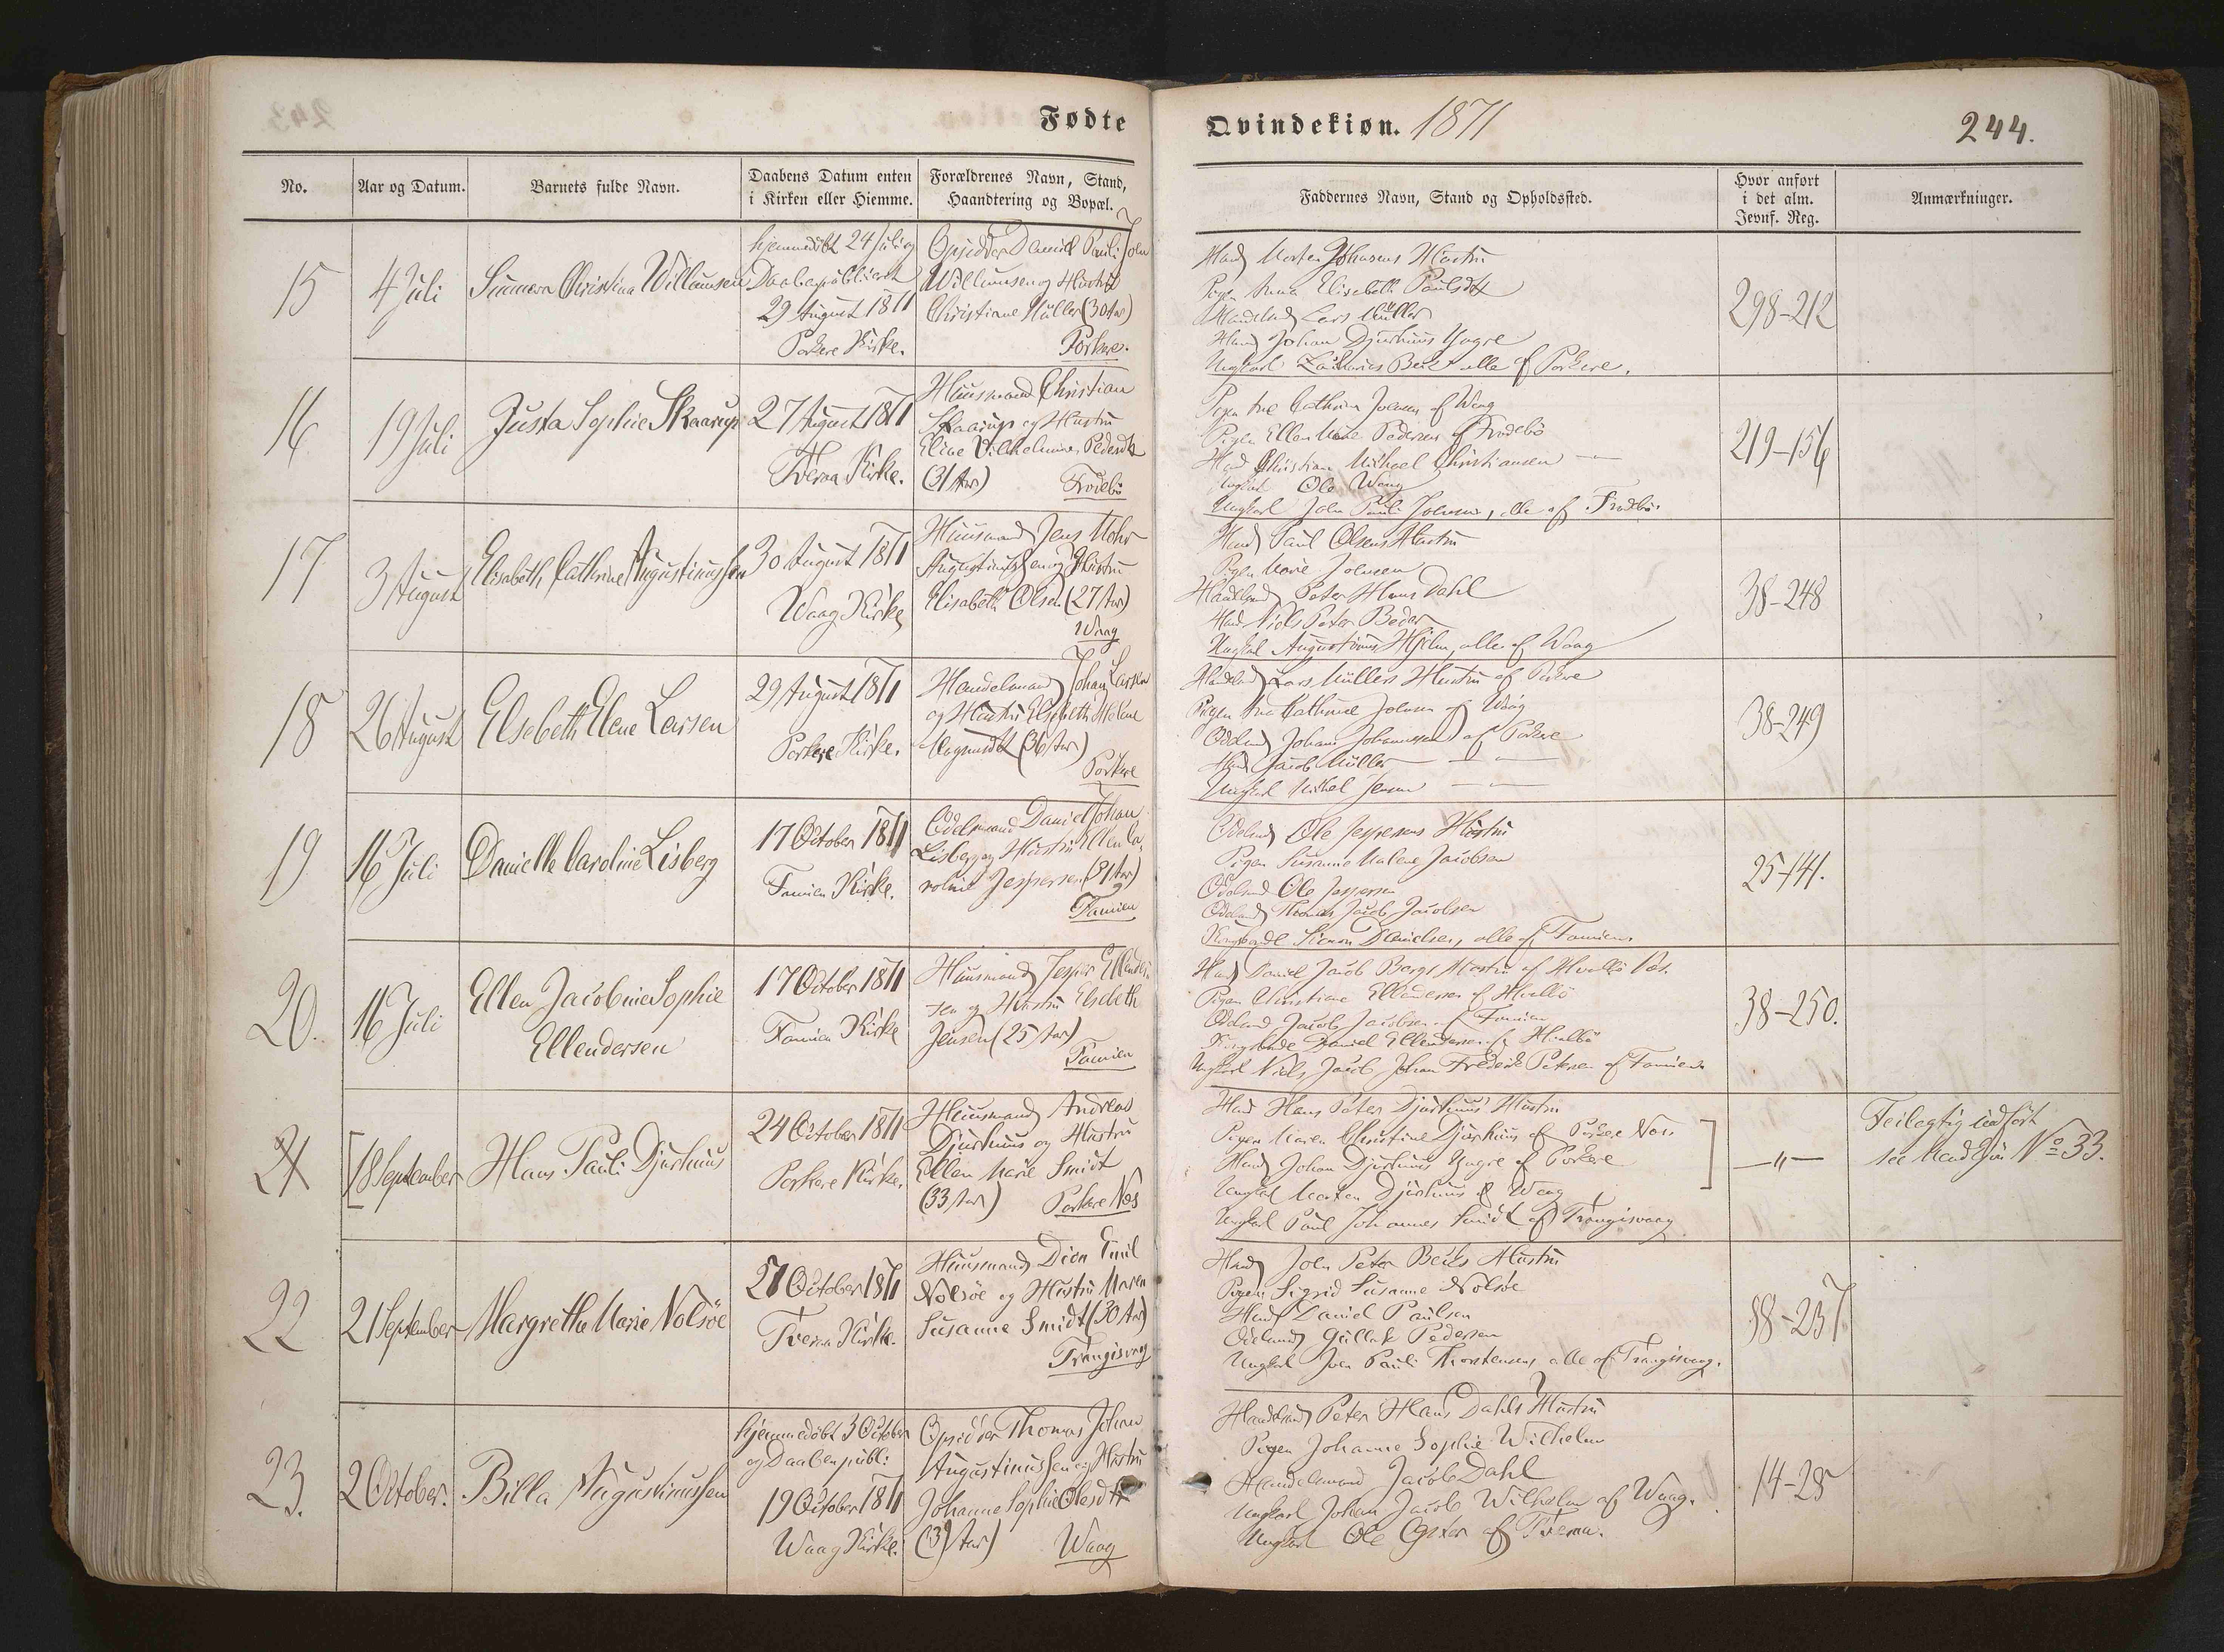 Fødte
Qvindekiøn. 1871
244.
No.
Aar og Datum.
Barnets fulde Navn.
Daabens Datum enten
i Kirken eller Hiemme.
Forældrenes Navn, Stand,
Haandtering og Bopæl.
Faddernes Navn, Stand og Opholdssted.
Hvor anført
i det alm.
Jevnf. Reg.
Anmærkninger.
15
4 Juli
Christina Willumsen
hjemmedøbt 24 Juli og
Daaben publiceret
29 August 1871
Porkere Kirke.
Opsidder Daniel Pauli John
Willumsen og Hustru
Christiane Müller (30 Aar)
Porkere.
Husmd Morten Johansens Hustru
Pigen Anna Elisabeth Paulsdtt
Handelsmd Lars Müller
Husmd Johan Djurhuus Yngre
Ungkarl Zacharias Beck alle af Porkere.
298-212
16
19 Juli
Justa Sophie Skaarup
27 August 1871
Tveraa Kirke.
Huusmand Christian
Skaarup og Hustru
Eline Vilhelmine Pedersdtt
(31 Aar) Frodebø
Pigen Ane Cathrine Joensen af Waag
Pigen Ellen Marie Pedersen af Frodebø
Husmd Christian Michael Christiansen —
Ungkarl Ole Waag
Ungkarl Joen Pauli Joensen, alle af Frodbø.
219-156
17
3 August
Elisabeth Cathrine Augustinussen
30 August 1871
Waag Kirke
Huusmand Jens Mohr
Augustinussen og Hustru
Elisabeth Olsen (27 Aar)
Waag
Husmd Paul Olsens Hustru
Pigen Marie Joensen
Handelsmd Peter Hans Dahl
Husmd Niels Peter Beder
Ungkarl Augustinus Hjelm, alle af Waag
38-248
18
26 August
Elsebeth Elene Larsen
29 August 1871
Porkere Kirke.
Handelsmand Johan Larsen
og Hustru Elsebeth Helene
Magnusdtt (36 Aar)
Porkere
Handelsmd Lars Müllers Hustru af Porkere
Pigen Ane Cathrine Joensen af Waag
Odelsmd Johan Johannessen af Porkere
Husmd Jacob Müller — —
Ungkarl Michel Jensen — —
38-249
19
16 Juli
Danielle Caroline Lisberg
17 October 1871
Famien Kirke.
Odelsmand Daniel Johan
Lisberg og Hustru Ellen Ca-
roline Jespersen (31 Aar)
Famien
Odelsmd Ole Jespersens Hustru
Pigen Susanne Malene Jacobsen
Odelsmd Ole Jespersen
Odelsmd Thomas Jacob Jacobsen
Kongsbonde Simon Danielsen, alle af Famien.
25-141.
20.
16 Juli
Ellen Jacobine Sophie
Ellendersen
17 October 1871
Famien Kirke
Huusmand Jesper Ellender-
sen og Hustru Elsebeth
Jensen (25 Aar)
Famien
Husmd Daniel Jacob Bergs Hustru af Hvalbø Næs.
Pigen Christiane Ellendersen af Hvalbø
Odelsmd Jacob Jacobsen af Famien
Kongsbonde Daniel Ellendersen af Hvalbø
Ungkarl Niels Jacob Johan Frederik Petersen af Famien
38-250.
21
[18 September
Hans Pauli Djurhuus
24 October 1871
Porkere Kirke.
Huusmand Andreas
Djurhuus og Hustru
Ellen Marie Smidt
(33 Aar) Porkere Næs
Husmd Hans Peter Djurhuus' Hustru
Pigen Maren Christine Djurhuus af Porkere Næs.
Husmd Johan Djurhuus Yngre af Porkere
Ungkarl Morten Djurhuus af Waag
Ungkarl Paul Johannes Smidt af Trangisvaag
]
— " —
Feilagtig indført
see Mandkjøn No 33.
22
21 September
Margretha Marie Nolsøe
27 October 1871
Tveraa Kirke.
Huusmand Dion Emil
Nolsøe og Hustru Maren
Susanne Smidt (30 Aar)
Trangisvaag
Husmd Joen Peter Becks Hustru
Pigen Sigrid Susanne Nolsøe
Husmd Daniel Paulsen
Odelsmd Gullak Pedersen
Ungkarl Joen Pauli Thorstensen, alle af Trangisvaag.
38-237
23.
2 October.
Billa Augustinussen
hjemmedøbt 3 October
og Daaben publi:
19 October 1871
Waag Kirke.
Opsidder Thomas Johan
Augustinussen og Hustru
Johanne Sophie Olesdtt
Waag
Handelsmd Peter Hans Dahls Hustru
Pigen Johanne Sophie Wilhelm
Handelsmand Jacob Dahl
Ungkarl Johan Jacob Wilhelm af Waag.
Ungkarl Ole af Tveraa.
14-28